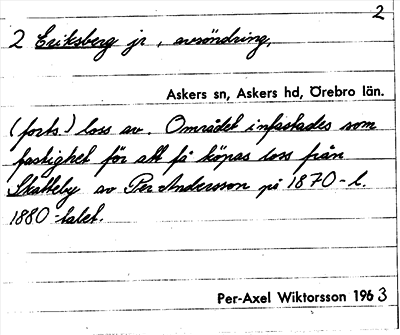 2
2 Eriksberg jr, avsöndring,
Askers sn, Askers hd, Örebro län.
(forts.) loss av. Området infästades som
fastighet för att få köpas loss från
Skatteby av Per Andersson på 1870-l.
1880-talet.
Per-Axel Wiktorsson 1963